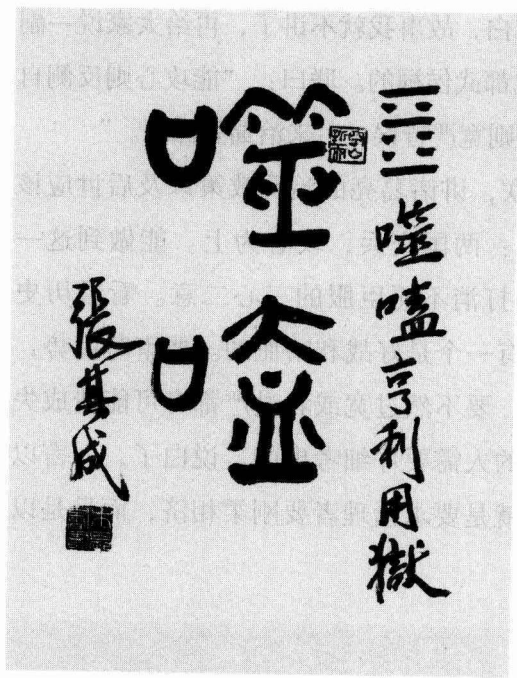 噬嗑亨利用獄
噬嗑
張其成